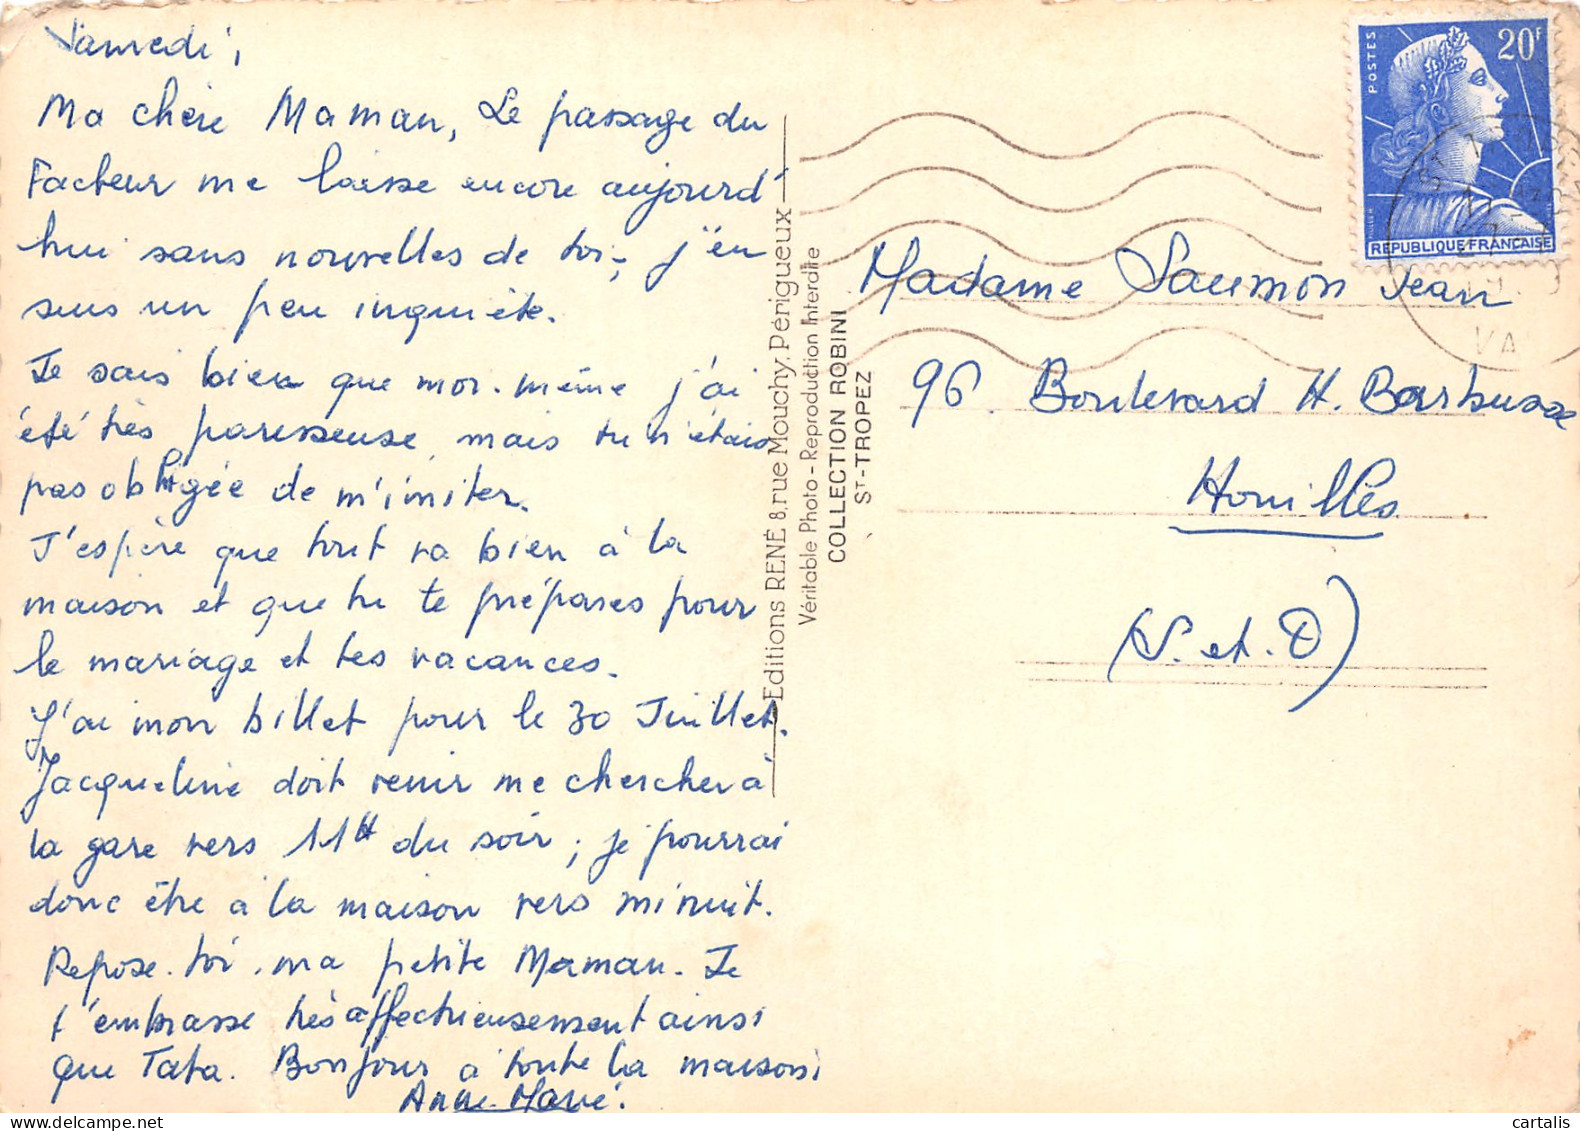 Samedi,
Ma chère Maman, Le passage du
Facteur me laisse encore aujourd'
hui sans nouvelles de toi, j'en
suis un peu inquiète.
Je sais bien que moi-même j'ai
été très paresseuse mais tu n'étais
pas obligée de m'imiter.
J'espère que tout va bien à la
maison et que tu te prépares pour
le mariage et tes vacances.
J'ai mon billet pour le 30 Juillet.
Jacqueline doit venir me chercher à
la gare vers 11H du soir ; je pourrai
donc être à la maison vers minuit.
Repose-toi, ma petite Maman. Je
t'embrasse très affectueusement ainsi
que Tata. Bonjour à toute la maison
Anne-Marie.
Editions RENÉ 8, rue Mouchy, Périgueux
Véritable Photo - Reproduction Interdite
COLLECTION ROBINI
ST-TROPEZ
POSTES
20F
MULLER
REPUBLIQUE FRANÇAISE
VA
Madame Saumon Jean
96 Boulevard H. Barbusse
Houilles
(S. et. O)
cartalis